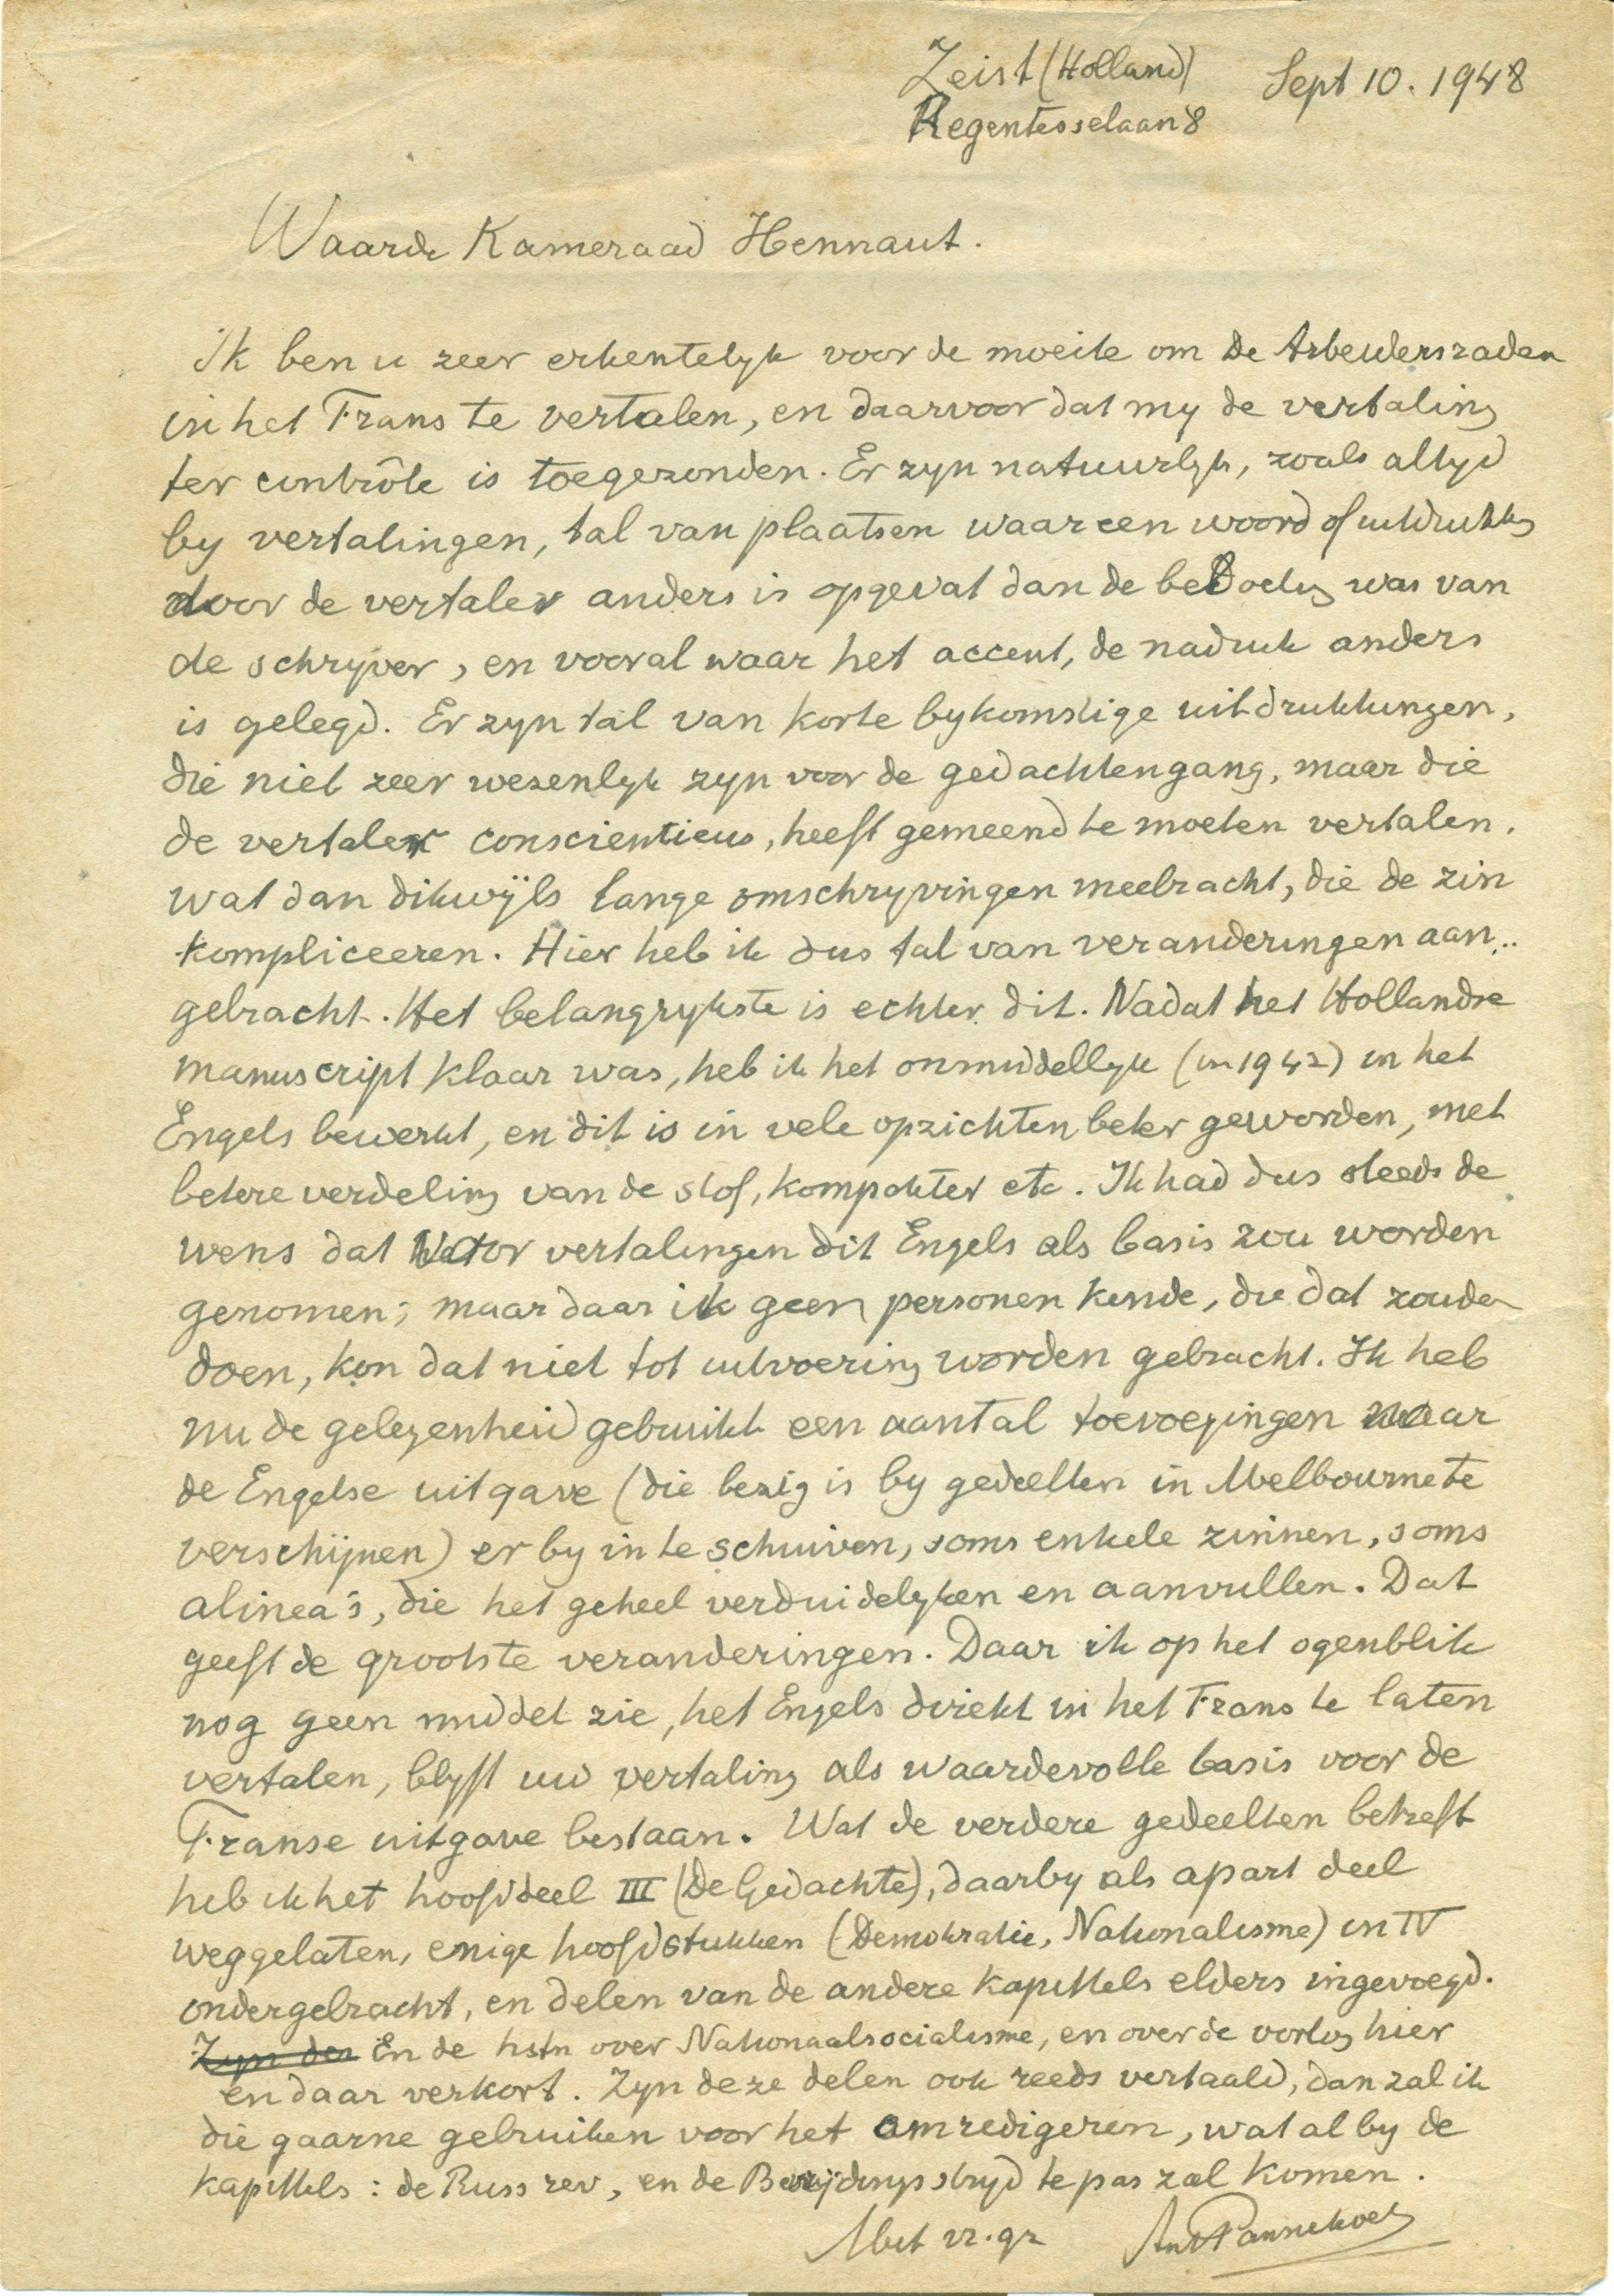 Zeist (Holland) Sept 10. 1948
Regentesselaan 8
Waarde Kameraad Hennaut.
Ik ben u zeer erkentelyk voor de moeite om De Arbeidersraden
in het Frans te vertalen, en daarvoor dat my de vertaling
ter contrôle is toegezonden. Er zyn natuurlyk, zoals altyd
by vertalingen, tal van plaatsen waar een woord of uitdrukking
door de vertaler anders is opgevat dan de bedoeling was van
de schryver, en vooral waar het accent, de nadruk anders
is gelegd. Er zyn tal van korte bykomstige uitdrukkingen,
die niet zeer wezenlyk zyn voor de gedachtengang, maar die
de vertaler conscientieus, heeft gemeend te moeten vertalen,
wat dan dikwÿls lange omschryvingen meebracht, die de zin
kompliceeren. Hier heb ik dus tal van veranderingen aan-
gebracht. Het belangrykste is echter dit. Nadat het Hollandse
manuscript klaar was, heb ik het onmiddellyk (in 1942) in het
Engels bewerkt, en dit is in vele opzichten beter geworden, met
betere verdeling van de stof, kompakter etc. Ik had dus steeds de
wens dat voor vertalingen dit Engels als basis zou worden
genomen; maar daar ik geen personen kende, die dat zouden
doen, kon dat niet tot uitvoering worden gebracht. Ik heb
nu de gelegenheid gebruikt een aantal toevoegingen naar
de Engelse uitgave (die bezig is by gedeelten in Melbourne te
verschijnen) er by in te schuiven, soms enkele zinnen, soms
alinea's, die het geheel verduidelyken en aanvullen. Dat
geeft de grootste veranderingen. Daar ik op het ogenblik
nog geen middel zie, het Engels direkt in het Frans te laten
vertalen, blyft uw vertaling als waardevolle basis voor de
Franse uitgave bestaan. Wat de verdere gedeelten betreft
heb ik het hoofddeel III (De Gedachte), daarby als apart deel
weggelaten, enige hoofdstukken (Demokratie, Nationalisme) in IV
ondergebracht, en delen van de andere kapittels elders ingevoegd.
Zyn dez En de hstn over Nationaalsocialisme, en over de oorlog hier
en daar verkort. Zyn deze delen ook reeds vertaald, dan zal ik
die gaarne gebruiken voor het omredigeren, wat al by de
kapittels: de Russ rev, en de Bevrijdingsstryd te pas zal komen.
Met vr. gr Ant Pannekoek